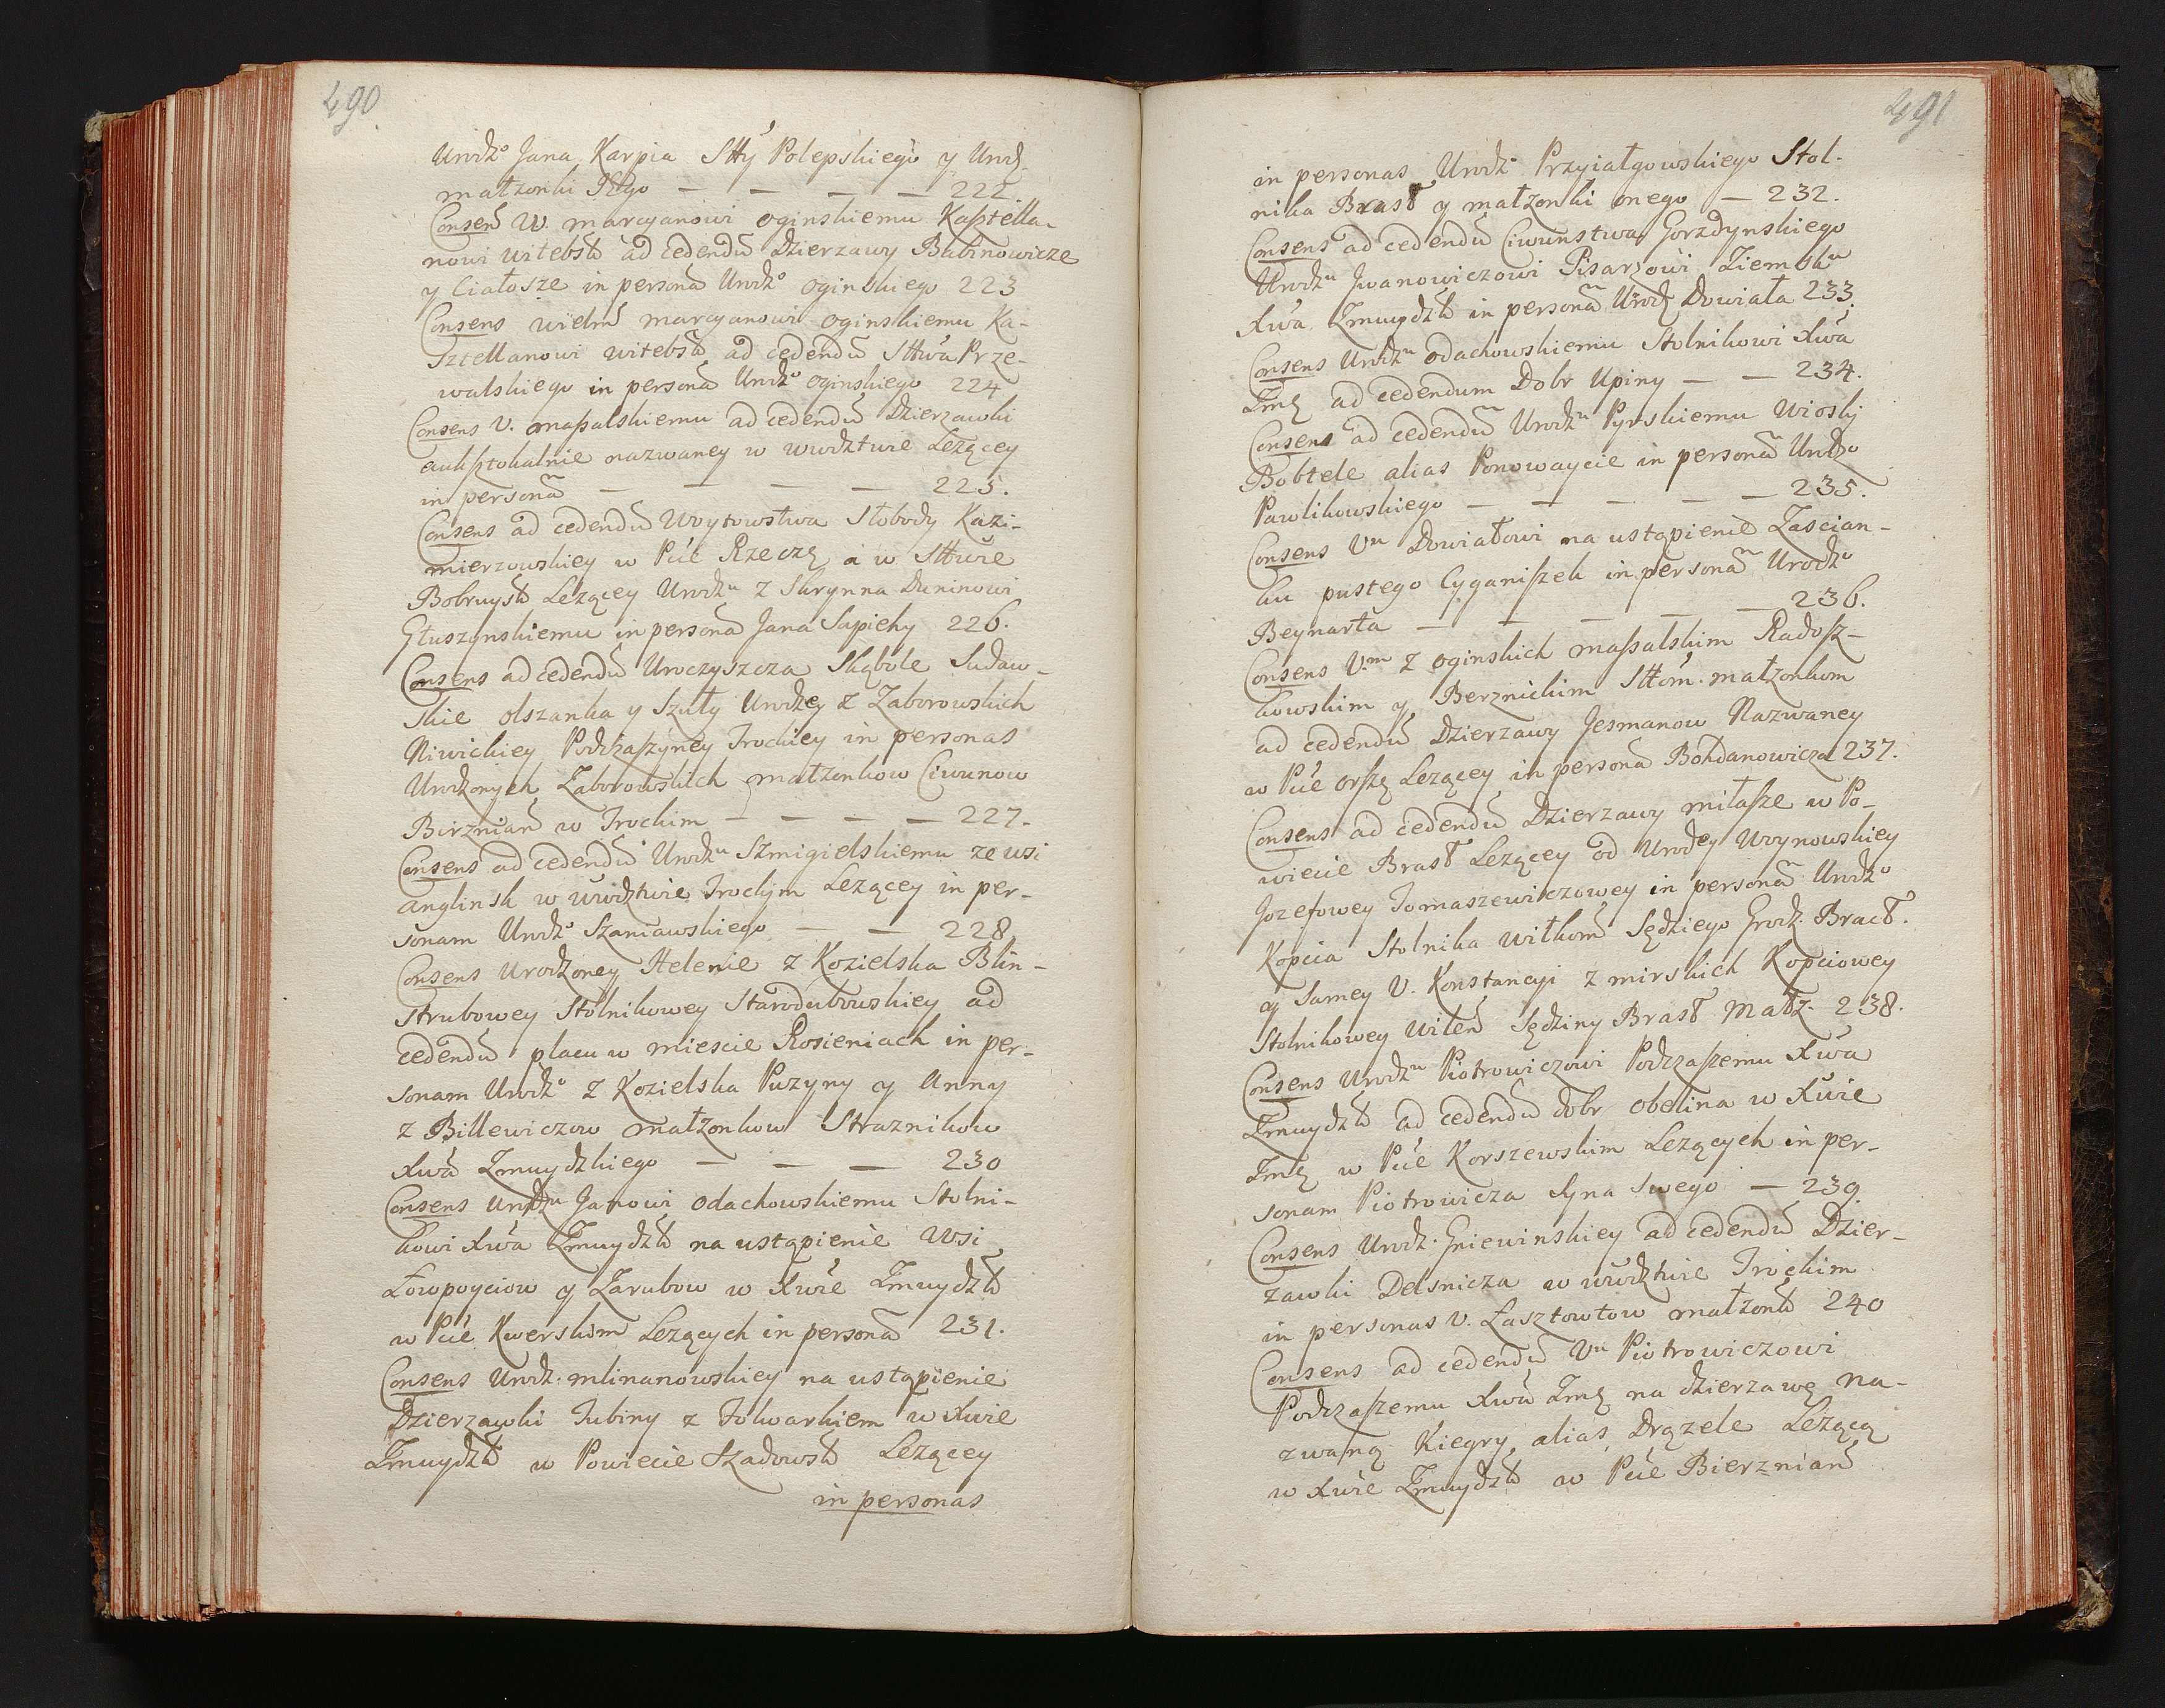 490
Urodzo Jana Karpia Stty Polepskiego y Urodz
małzonki JEgo — — — — 222.
Consens W. marcyanowi oginskiemu Kasztella-
nowi witebsk ad cedendū Dzierzawy Babinowicze
y Ciałosze in personā Urodzo oginskiego 223
Consens wielm marcyanowi oginskiemu Ka-
sztellanowi witebsk ad cedendū Sttwa Prze-
walskiego in personā Urodzo oginskiego 224
Consens U. massalskiemu ad cedendū Dzierzawki
auksztokalnie nazwaney w wwdztwie Lezącey
in personā — — — — 225.
Consens ad cedendū Woytowstwa Słobody Kazi-
mierzowskiey w Pcie Rzeczą a w Sttwie
Bobruysk Lezącey Urodzu z Skrynna Duninowi
Głuszynskiemu in personā Jana Sapiehy 226.
Consens ad cedendū Uroczyszcza Skąbole Sudaw-
skie olszanka y Szuły Urodzey z Zaborowskich
Niwickiey Podczaszyney Trockiey in personas
Urodzonych Zaborowskich małzonkow Ciwunow
Birznian w Trockim — — — — 227.
Consens ad cedendū Urodzu Szmigielskiemu ze wsi
anglinsk w wwdztwie Trockim Lezącey in per-
sonam Urodzo Szaniawskiego — — 228
Consens Urodzoney Helenie z Kozielska Blin-
strubowey Stolnikowey Starodubowskiey ad
cedendū placu w miescie Rosieniach in per-
sonam Urodzo z Kozielska Puzyny y Anny
z Billewiczow małzonkow Straznikow
Xwa Zmuydzkiego — — — 230
Consens Urodzu Janowi odachowskiemu Stolni-
kowi Xwa Zmuydzk na ustąpienie Wsi
Łowpoyciow y Zarubow w Xwie Zmuydzk
w Pcie Kwerskim Lezących in personā 231.
Consens Urodz. mlinanowskiey na ustąpienie
Dzierzawki Tubiny z folwarkiem w Xwie
Zmuydzk w Powiecie Szadowsk Lezącey
in personas
491
in personas Urodzo Przyiałgowskiego Stol-
nika Brasł y małzonki onego — 232.
Consens ad cedendū Ciwunstwa Gorzdynskiego
Urodzu Jwanowiczowi Pisarzowi Ziemsku
Xwa Zmuydzk in personā Urodz Dowiata 233.
Consens Urodzu odachowskiemu Stolnikowi Xwa
Zmą ad cedendum Dobr Upiny — — 234.
Consens ad cedendū Urodzu Pyrskiemu Wioski
Bobtele alias Ponowaycie in personā Urodzo
Pawlikowskiego — — — — — 235.
Consens Uu Dowiatowi na ustąpienie Zascian-
ku pustego Cyganiszek in personā Urodzo
Beynarta — — — — — 236.
Consens U.m z oginskich massalskim Radosz-
kowskim y Berznickim Sttom. małzonkom
ad cedendū Dzierzawy Jesmanow Nazwaney
w Pcie orszą Lezącey in personā Bohdanowicza 237.
Consens ad cedendū Dzierzawy miłasze w Po-
wiecie Brasł Lezącey od Urodzey Woynowskiey
Jozefowey Tomaszewiczowey in personā Urodzo
Kopcia Stolnika wiłkom Sędziego Grodz. Bracł.
y Samey U. Konstancyi z mirskich Kopciowey
Stolnikowey wilen Sędziny Brasł Małz. 238.
Consens Urodzu Piotrowiczowi Podczaszemu Xwa
Zmuydzk ad cedendū dobr obelina w Xwie
Zmą w Pcie Korszewskim Lezących in per-
sonam Piotrowicza Syna Swego — 239.
Consens Urodz. Gniewinskiey ad cedendū Dzier-
zawki Delsnicza w wwdztwie Trockim
in personas U. Łasztowtow małzonk 240
Consens ad cedendū Uu Piotrowiczowi
Podczaszemu Xwa Zmą na dzierzawę na-
zwaną Kiegry alias Drązele Lezącą
w Xwie Zmuydzk w Pcie Bierznian